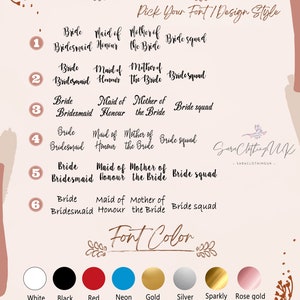 Pick Your Font / Design Style
1
Bride Maid of Mother of Bride squad
Bridesmaid Honour the Bride
2
Bride Maid of Mother of Bride squad
Bridesmaid Honour The Bride
3
Bride Maid of Mother of Bride squad
Bridesmaid Honour the Bride
4
Bride Maid of Mother of Bride squad
Bridesmaid Honour the Bride
SaraClothinUK
SARACLOTHINGUK
5
Bride Maid of Mother of Bride squad
Bridesmaid Honour the Bride
6
Bride Maid of Mother of Bride squad
Bridesmaid Honour the Bride
Font Color
White Black Red Neon Gold Silver Sparkly Rose gold